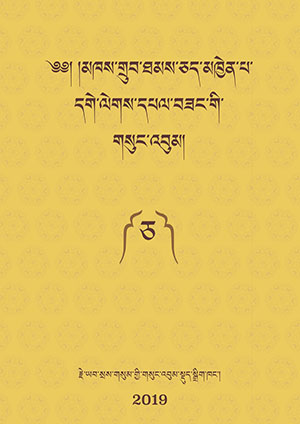 ༄༅། །མཁས་གྲུབ་ཐམས་ཅད་མཁྱེན་པ་
དགེ་ལེགས་དཔལ་བཟང་གི་
གསུང་འབུམ།
ཅ
རྗེ་ཡབ་སྲས་གསུམ་གྱི་གསུང་འབུམ་སྡུད་སྒྲིག་ཁང་།
2019